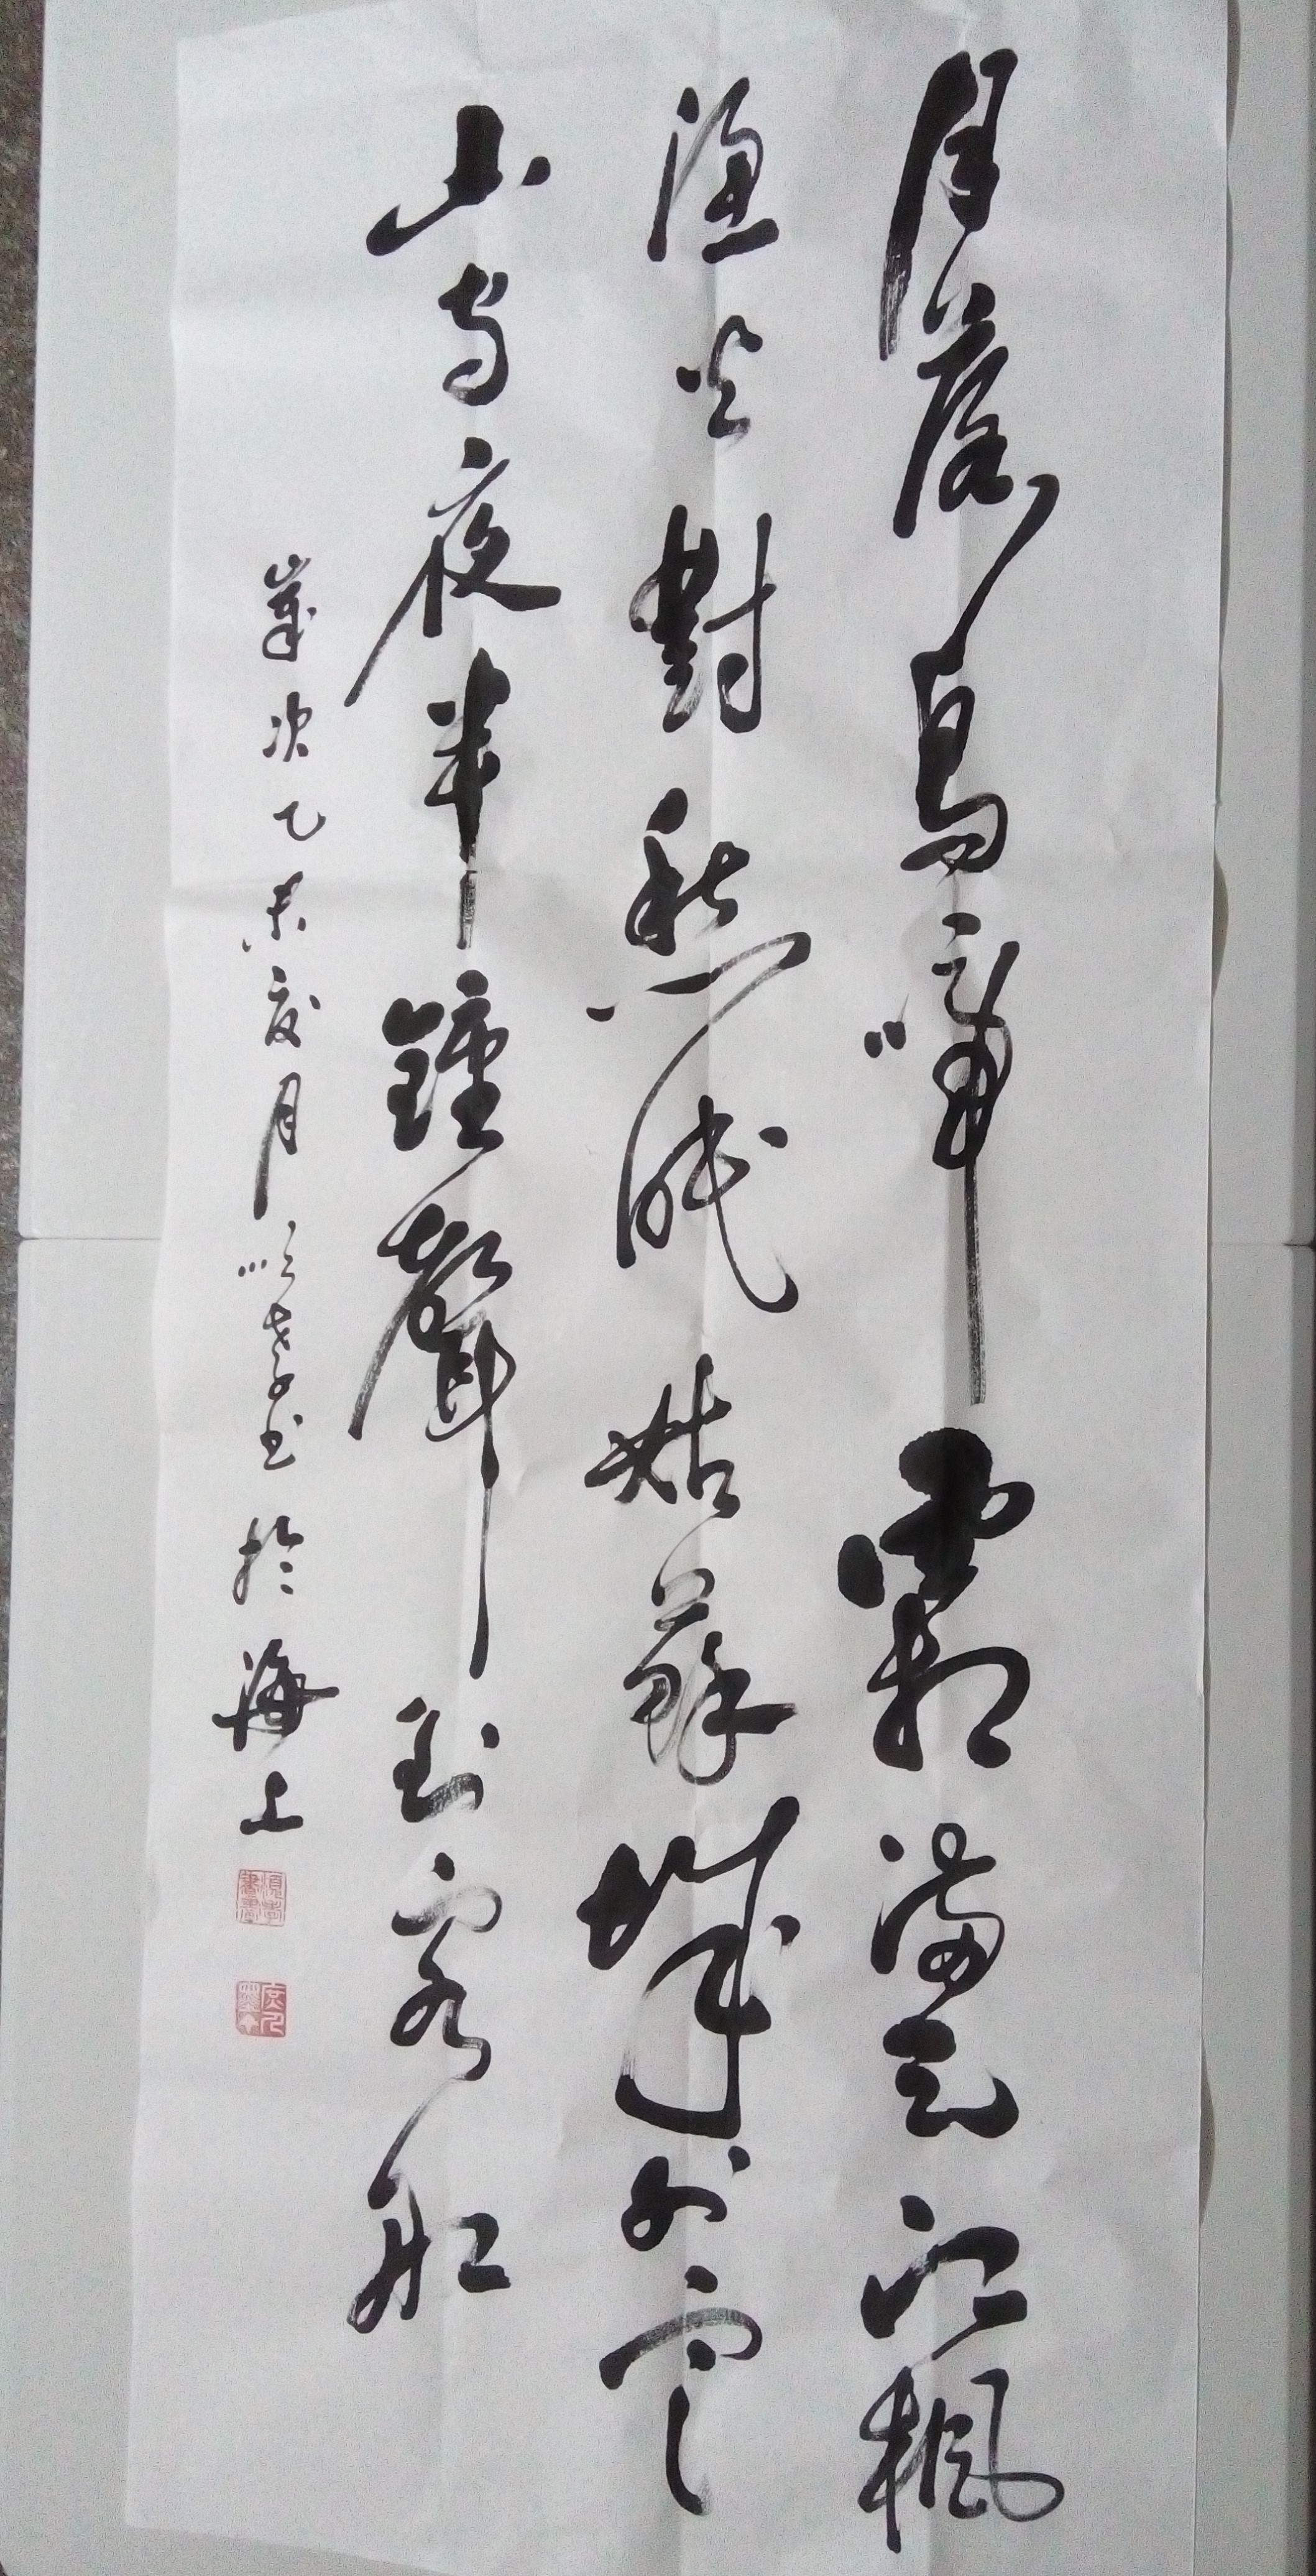 月落烏啼霜滿天江楓
漁火對愁眠姑蘇城外寒
山寺夜半鐘聲到客船
歲次乙未夏月 書於海上